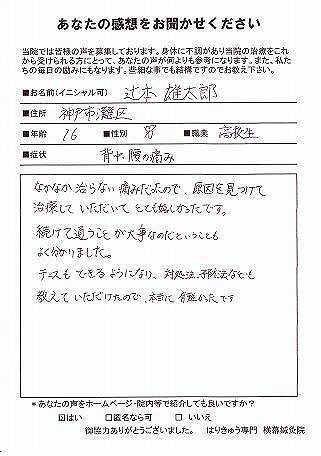 あなたの感想をお聞かせください
当院では皆様の声を募集しております。身体に不調があり当院の治療をこれ
から受けられる方にとって、あなたの声が何よりも参考になります。また、私た
ちの毎日の励みにもなります。些細な事でも結構ですのでお教え下さい。
■お名前(イニシャル可) 辻本 雄太郎
■住所 神戸市灘区
■年齢 16 ■性別 男 ■職業 高校生
■症状 背中、腰の痛み
なかなか治らない痛みだったので、原因を見つけて
治療していただいてとても嬉しかったです。
続けて通うことが大事なのだということも
よく分かりました。
テニスもできるようになり、対処法、予防法なども
教えていただけたので、本当に有難かったです
*あなたの声をホームページ・院内等で紹介しても良いですか?
☑はい □匿名なら可 □ いいえ
御協力ありがとうございました。 はりきゅう専門 横幕鍼灸院